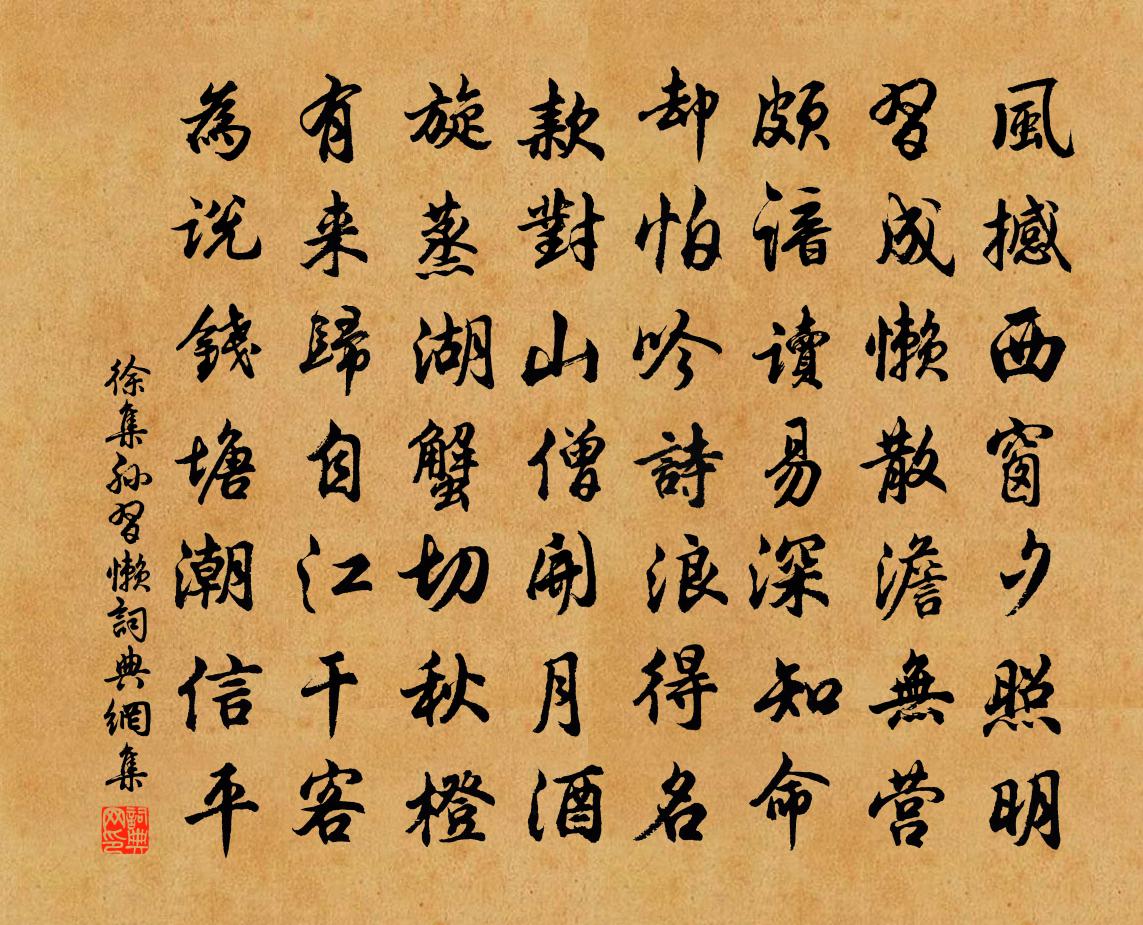 風撼西窗夕照明
習成懒散澹無营
頗谙讀易深知命
却怕吟詩浪得名
款對山僧開月酒
旋蒸湖蟹切秋橙
有来歸自江干客
為说錢塘潮信平
徐集孙習懒詞典網集
詞典网印